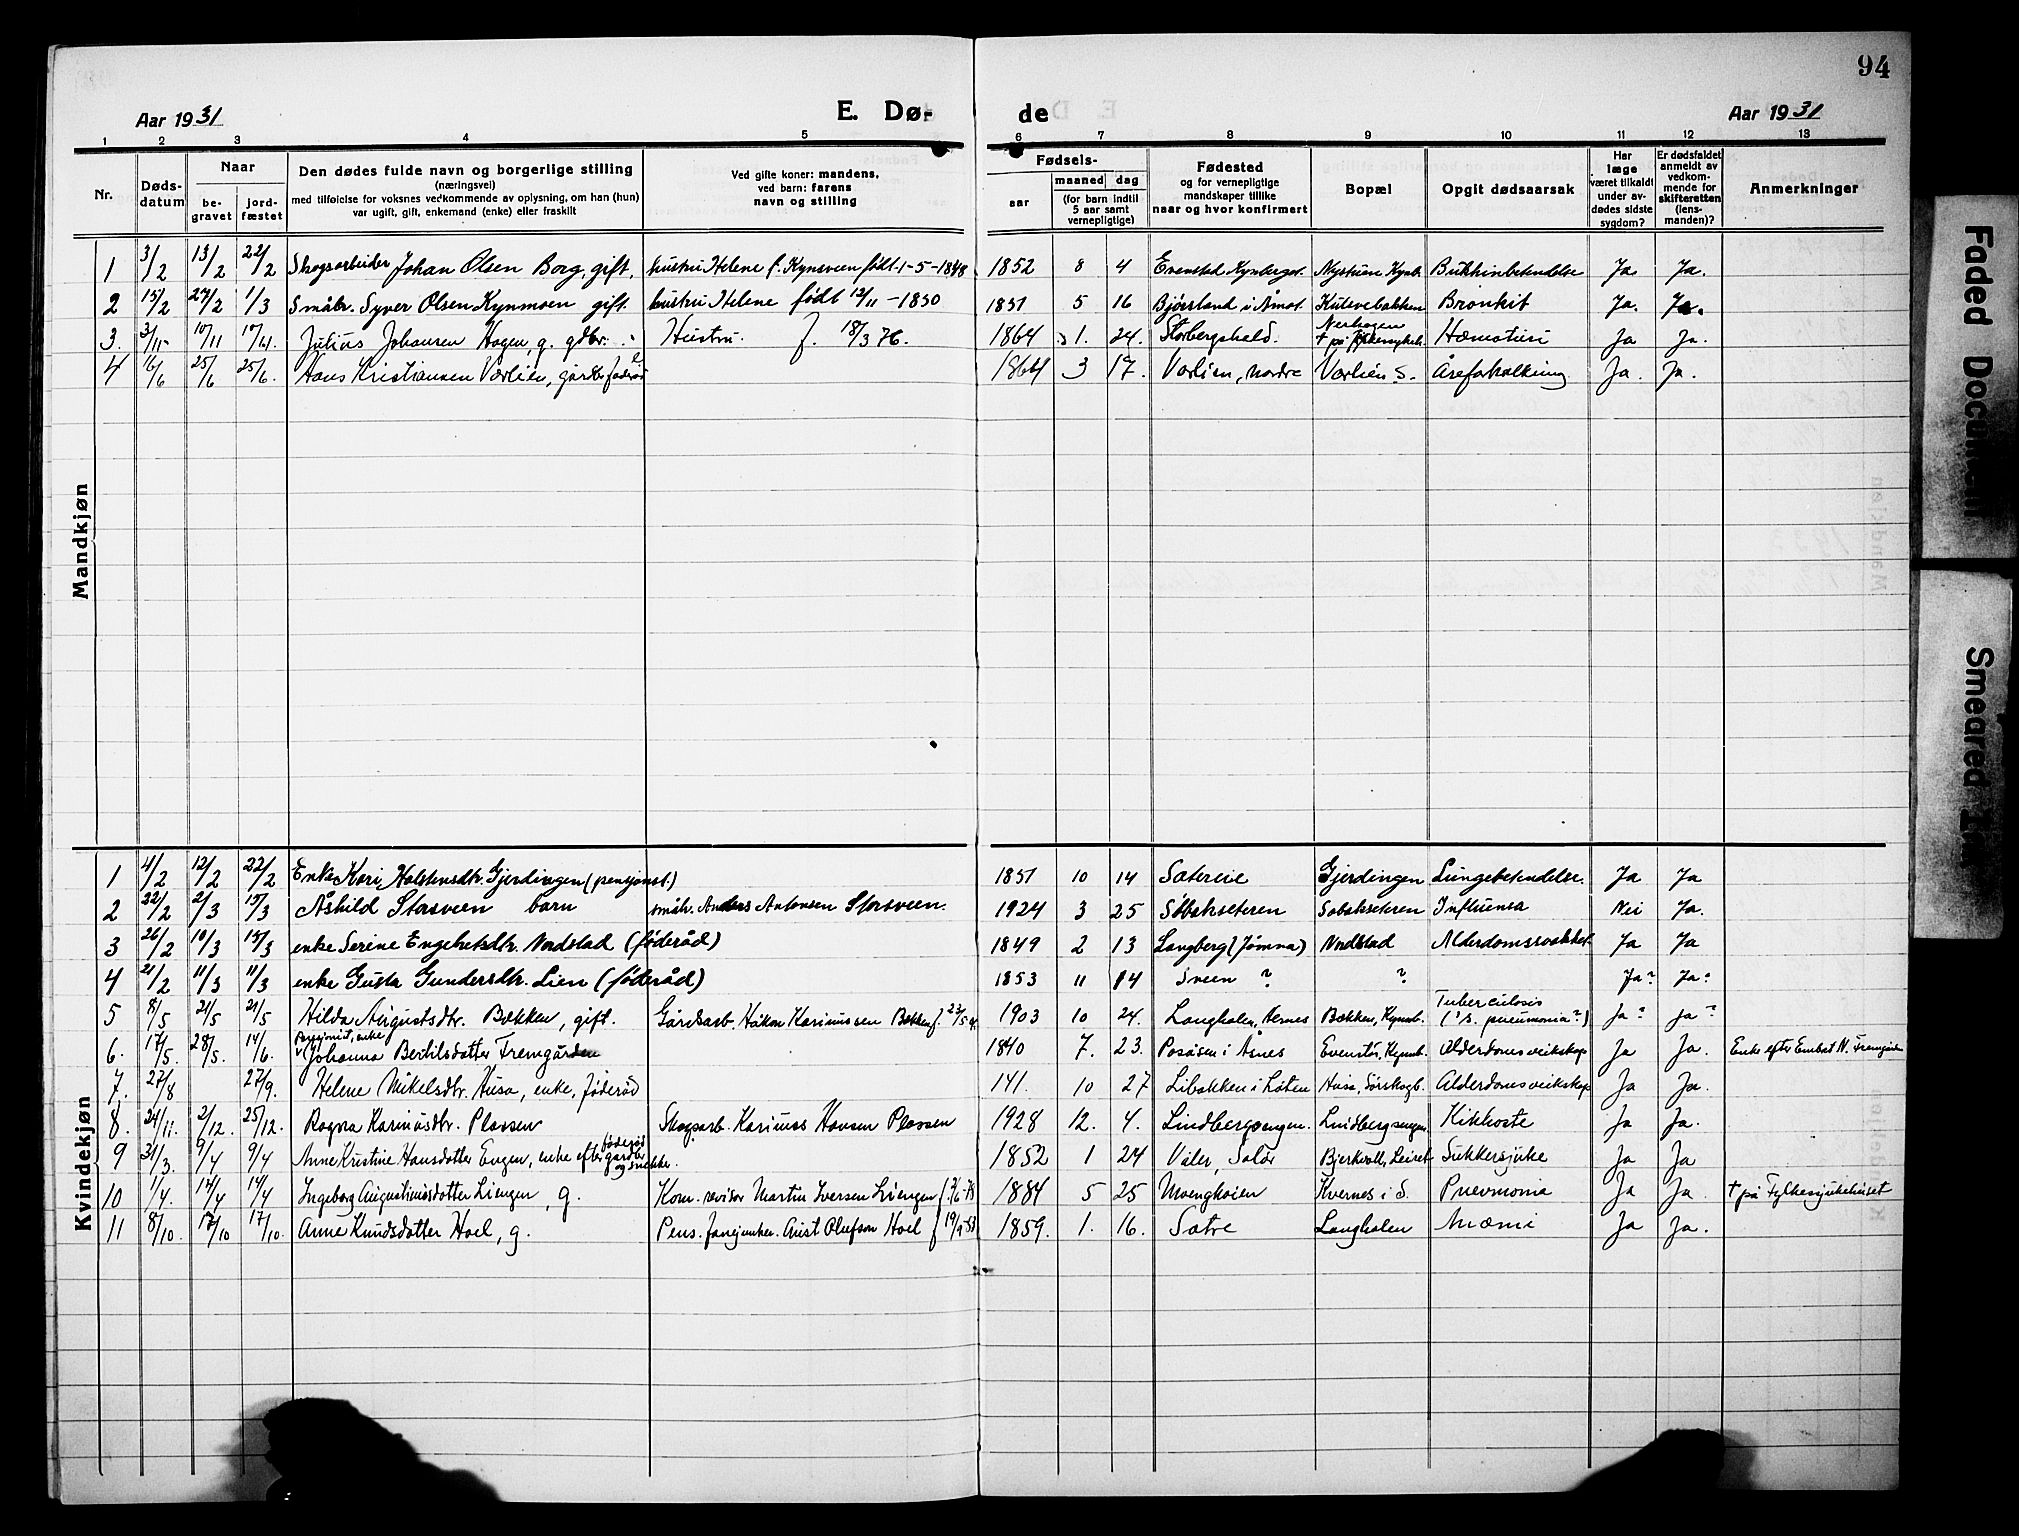 94
Aar 1931
E. Dø-
de
Aar 1931
1 2 3 4 5 6 7 8 9 10 11 12 13
Nr.
Døds-
datum
Naar
be-
gravet
jord-
fæstet
Den dødes fulde navn og borgerlige stilling
(næringsvei)
med tilføielse for voksnes vedkommende av oplysning, om han (hun)
var ugift, gift, enkemand (enke) eller fraskilt
Ved gifte koner: mandens,
ved barn: farens
navn og stilling
Fødsels-
aar
maaned
dag
(for barn indtil
5 aar samt
vernepligtige)
Fødested
og for vernepligtige
mandskaper tillike
naar og hvor konfirmert
Bopæl
Opgit dødsaarsak
Har
læge
været tilkaldt
under av-
dødes sidste
sygdom?
Er dødsfaldet
anmeldt av
vedkom-
mende for
skifteretten
(lens-
manden)?
Anmerkninger
Mandkjøn
1 3/2 13/2 22/2 Skogsarbeider Johan Olsen Borg, gift, hustru Helene f. Kynsveen født 1-5-1848 1852 8 4 Evensted Kynbergst. Nystuen Kynb. Bukhinbetendelse Ja Ja.
2 15/2 27/2 1/3 Småbr. Syver Olsen Kynmoen gift. hustru Helene født 12/11 - 1850 1851 5 16 Bjørsland i Åmot. Kutevebakken Bronkit Ja. Ja.
3. 3/11 10/11 Julius Johansen Hagen, g. gdbr. Hustru f. 18/3 76. 1864 1. 24. Storbergsheld. Nerhagen Hæmatusi Ja Ja.
4 16/6 25/6 25/6. Hans Kristiansen Værlien, 1864 3 17. Vorlien, nordre Værlien S. Åreforkalkning Ja. Ja.
Kvindekjøn
1 4/2 12/2 22/2 Enke Kari Halstensdtr. Gjerdingen (pensjonist.) 1851 10 14 Sætereie Gjerdingen Lungebetendelse. Ja Ja
2 22/2 2/3 15/3 Åshild Storsveen barn småbr. Anders Antonsen Storsveen. 1924 3 25 Sobakseteren Sobakseteren Influensa Nei Ja.
3 26/2 10/3 15/3 enke Serine Engebretsdtr. Nordstad (føderåd) 1849 2 13 Langberg (Jømna) Nordstad Alderdomssvakhet Ja Ja
4 21/2 11/3 11/3 enke Gusta Gundersdtr. Lien (føderåd) 1853 11 14 Sveen ? ? Ja? Ja?
5 8/5 21/5 21/5 Hilda Augustsdtr. Bækken, gift. Gårdsarb. Håkon Karinussen Bækken f. 1903 10 24. Langholen, Aasnes Bækken, Kynnb. Tuberculosis
(1/2. pneumonia?) Ja? Ja?
6. 17/5. 28/5. 14/6. Pensjonist, enke
Johanna Bertilsdatter Fremgården 1840 7. 23. Posåsen i Åsnes Evenstår, Kynnb. Alderdomsveikskap Ja Ja. Enke efter Embret N. Fremgården
7. 27/8 27/9. Helene Mikelsdtr. Husa, enke, føderåd 141. 10 27 Libakken i Løten Husa, Sørskogb. Alderdomsveikskap Ja Ja.
8. 24/11. 2/12. 25/12. Ragna Karinusdtr. Plassen Skogsarb. Karinus Hansen Plassen 1928 12. 4. Lindbergsengen. Lindbergsengen Kikhoste Ja Ja.
9 31/3. 9/4 9/4 Anne Kristine Hansdatter Engen, enke efter føderåd
gårdbr.
og snekker. 1852 1 24 Våler, Solør Bjerkvoll, Leiret Sukkersjuke Ja Ja
10 1/4. 14/4 14/4 Ingeborg Augustinusdatter Liengen, g. Kom. revisor Martin Iversen Liengen 1884 5 25 Moengkoien Kvernes i S. Pnevmonia Ja Ja + på Fylkessjukehuset
11 8/10. 17/10 17/10. Anne Knudsdatter Hoel, g. Pens. fanejunker. Olufson Hoel f. 1859. 1. 16. Sætre Langholen Anæmi Ja Ja.
Faded Document
Smeared Ink